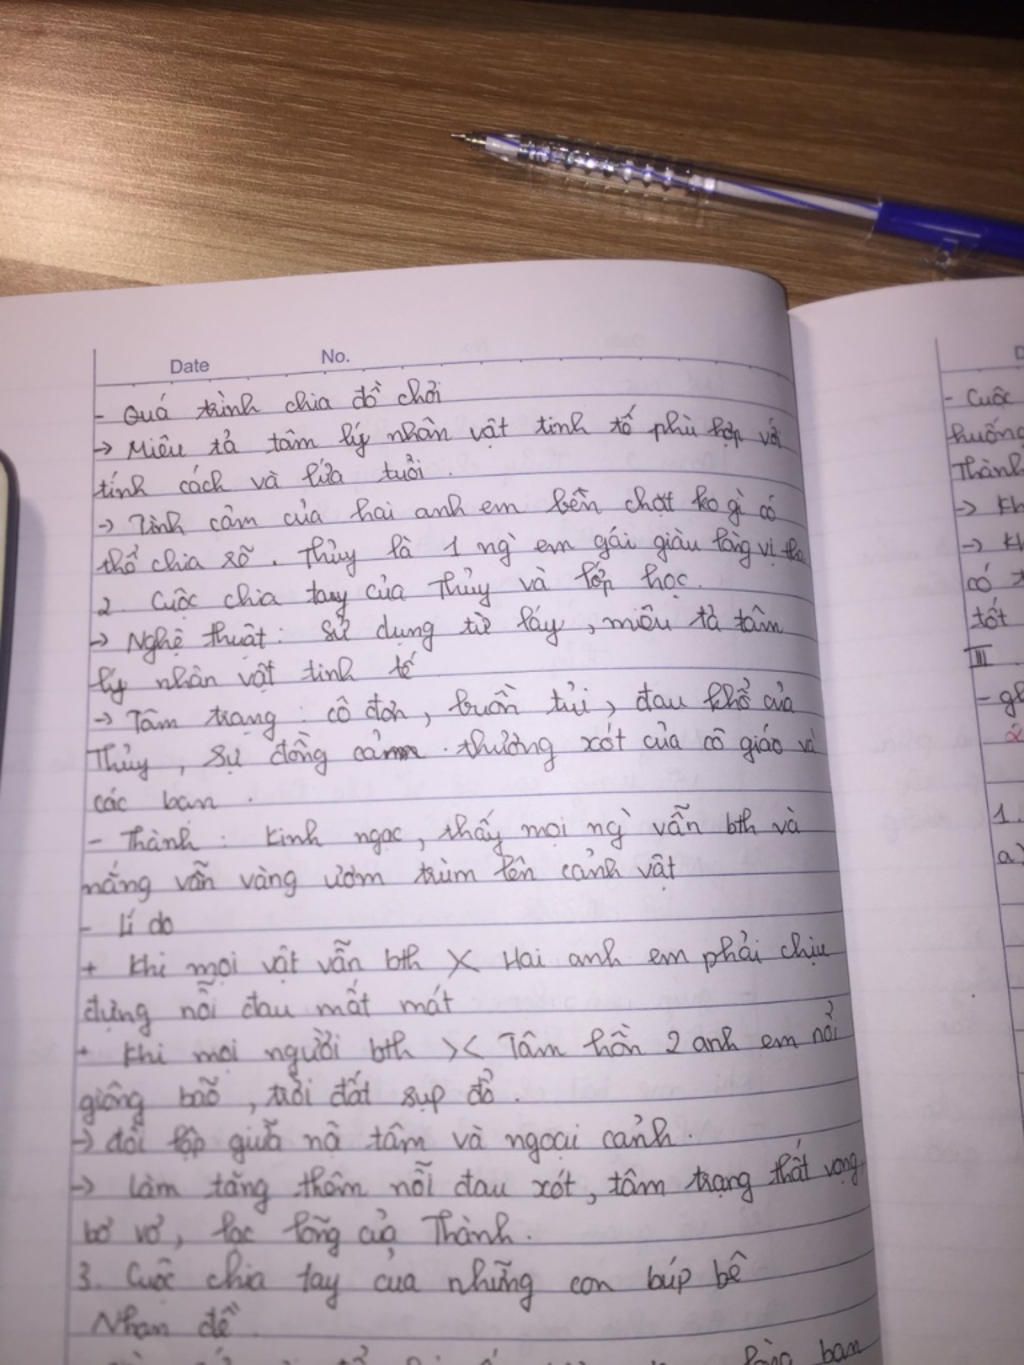 Date No.
- Quá trình chia đồ chơi
→ Miêu tả tâm lý nhân vật tinh tế phù hợp với
tính cách và lứa tuổi.
→ Tình cảm của hai anh em bền chặt ko gì có
thể chia rẽ. Thủy là 1 ng` em gái giàu lòng vị tha
2. Cuộc chia tay của Thủy và lớp học.
→ Nghệ thuật: Sử dụng từ láy, miêu tả tâm
lý nhân vật tinh tế
→ Tâm trạng: cô đơn, buồn tủi, đau khổ của
Thủy, sự đồng cảm. thương xót của cô giáo và
các bạn.
- Thành: Kinh ngạc, thấy mọi ng` vẫn bth và
nắng vẫn vàng ươm trùm lên cảnh vật
- Lí do
+ Khi mọi vật vẫn bth >< Hai anh em phải chịu
đựng nỗi đau mất mát
+ Khi mọi người bth >< Tâm hồn 2 anh em nổi
giông bão, trời đất sụp đổ.
→ đối lập giữa nộ tâm và ngoại cảnh.
→ Làm tăng thêm nỗi đau xót, tâm trạng thất vọng
bơ vơ, lạc lõng của Thành.
3. Cuộc chia tay của những con búp bê
Nhan đề.
- Cuộc
huống
Thành
→ Kh
→ Kh
có
tốt
III
1.
a)